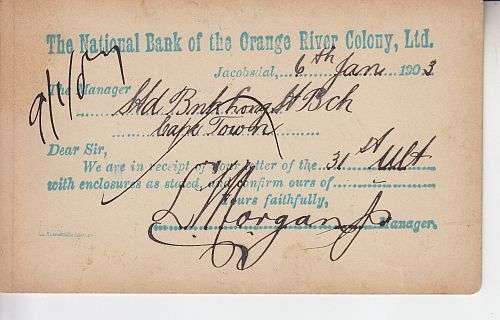 The National Bank of the Orange River Colony, Ltd.
Jacobsdal, 6th Jan 1903
The Manager
Std Bnk Long St Bch
Cape Town
Dear Sir,
We are in receipt of your letter of the 31st Ult
with enclosures as stated, and confirm ours of
Yours faithfully,
Morgan Jr Manager.